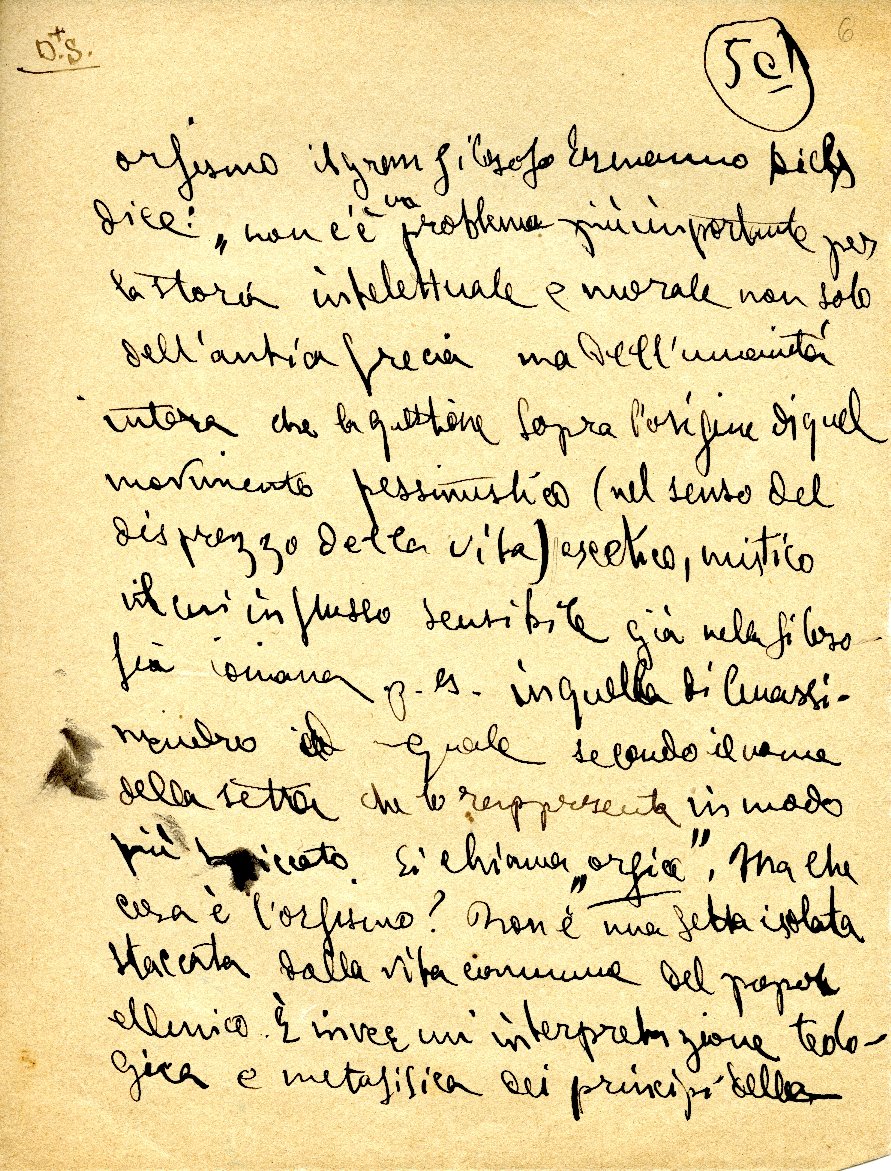 D.S.
5c)
6
orfismo il gran filosofo Ermanno Diels
dice: „non c'è un problema più importante per
la storia intelettuale e morale non solo
dell'antica Grecia ma dell'umanità
intera che la questione sopra l'origine di quel
movimento pessimistico (nel senso del
disprezzo della vita) ascetico, mistico
il cui influsso sensibile già nella filoso
fia ioniana p. es. in quella di Anassi-
mandro quale secondo il nome
della setta che lo rappresenta in modo
più spiccato si chiama „orfica". Ma che
cosa è l'orfismo? Non è una setta isolata
staccata dalla vita commune del popolo
ellenico. È invece un'interpretazione teolo-
gica e metafisica dei principi della